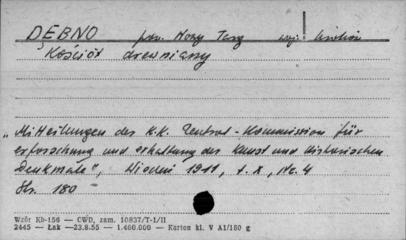 DĘBNO pow. Nowy Targ woj. Kraków
Kościół drewniany
„Mitteilungen des k.k. Zentral-Kommission für
erforschung und erhaltung des Kunst und historischen
Denkmale", Wiedeń 1911, t. X, Nr. 4
Str. 180
Wzór Kb-156 — CWD, zam. 10837/T-1/II
2445 — Łak —23.8.55 — 1.400.000 — Karton kl. V A1/180 g